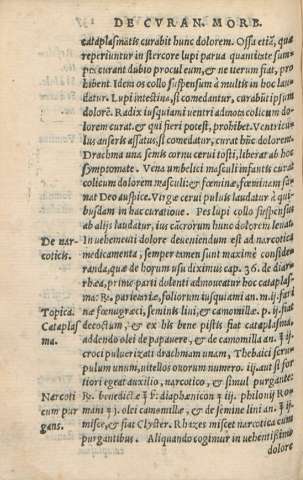 DE CVRAN. MORB.
cataplasmatis curabit hunc dolorem. Ossa etiā, quæ
reperiuntur in stercore lupi parua quantitate sum-
pta curant dubio procul eum, & ne iterum fiat, pro
hibent. Idem os collo suspensum à multis in hoc lau-
datur. Lupi intestina, si comedantur, curabūt ipsum
dolorē. Radix iusquiami ventri admota colicum do-
lorem curat, & qui fieri potest, prohibet. Ventricu-
lus anseris assatus, si comedatur, curat hūc dolorem.
Drachma una semis cornu cerui tosti, liberat ab hoc
symptomate. Vena umbelici masculi infantis curat
colicum dolorem masculi: & fœminæ, fœminam sa-
nat Deo auspice. Virgæ cerui puluis laudatur à qui-
busdam in hac curatione. Pes lupi collo suspensus
ab alijs laudatur, ius cācrorum hunc dolorem leuat.
De nar-
coticis.
In uehementi dolore deueniendum est ad narcotica
medicamenta, semper tamen sunt maximè conside
randa, quæ de horum usu diximus cap. 36. de diar-
rhœa, primò parti dolenti admoueatur hoc catapla-
sma: ℞. parietariæ, foliorum iusquiami an. m. ij. fari
Topica.
Cataplas
ma.
næ fœnugræci, seminis lini, & camomillæ. p. ij. fiat
decoctum, & ex his bene pistis fiat cataplasma,
addendo olei de papauere, & de camomilla an. ℥ ij.
croci puluerizati drachmam unam, Thebaici scru-
pulum unum, uitellos ouorum numero. iij. aut si for
tiori egeat auxilio, narcotico, & simul purgante:
Narcoti
cum pur
gans.
℞. benedictæ ℥ ſ: diaphœnicon ʒ iij. philonij Ro
mani ʒ j. olei camomillæ, & de semine lini an. ℥ ij.
misce, & fiat Clyster. Rhazes miscet narcotica cum
purgantibus. Aliquando cogimur in uehentißimo
dolore